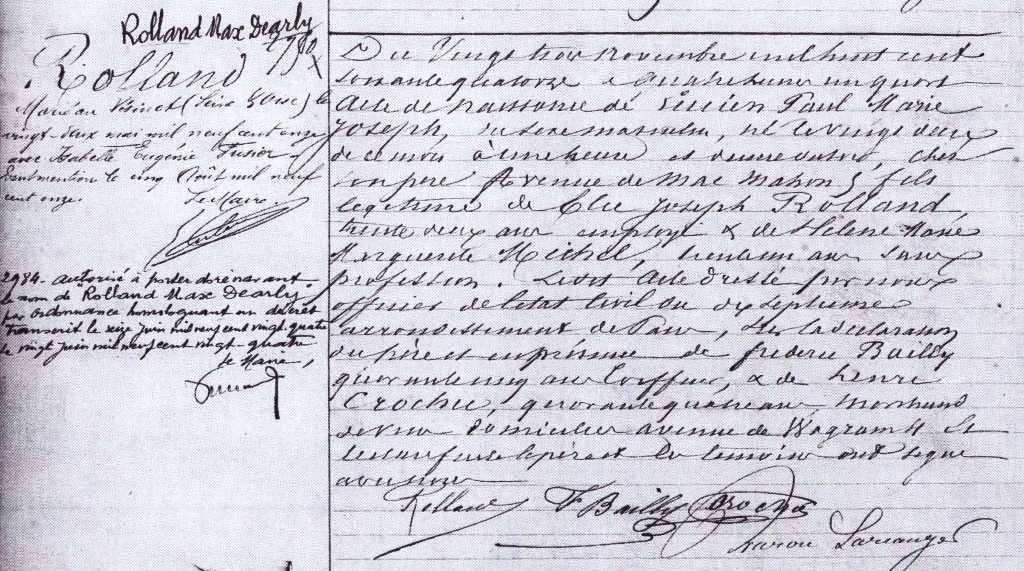 Rolland Max Dearly
Rolland
Marié au Vésinet (Seine & Oise) le
vingt-deux mai mil neuf cent onze
avec Isabelle Eugénie Fusier
Dont mention le cinq Août mil neuf
cent onze. Le Maire.
2984. autorisé à porter dorénavant
le nom de Rolland Max Dearly
par ordonnance homologuant un décret
transcrit le seize juin mil neuf cent vingt quatre
le vingt juin mil neuf cent vingt-quatre
le Maire,
Du Vingt trois novembre mil huit cent
soixante quatorze à quatre heures un quart
Acte de naissance de Lucien Paul Marie
Joseph, du sexe masculin, né le vingt deux
de ce mois à une heure et demie du soir, chez
son père Avenue de Mac Mahon 5, fils
légitime de Elie Joseph Rolland,
trente deux ans employé & de Hélène Marie
Marguerite Michel, trente un ans sans
profession. Ledit Acte dressé par nous
officier de l'état civil du dix septième
arrondissement de Paris, sur la déclaration
du père et en présence de frédéric Bailly
quarante cinq ans Coiffeur, & de henri
Crochu, quarante quatre ans, Marchand
de vin domiciliés avenue de Wagram 4 Et
lecture faite le père et les témoins ont signé
avec nous
Rolland F Bailly Crochu